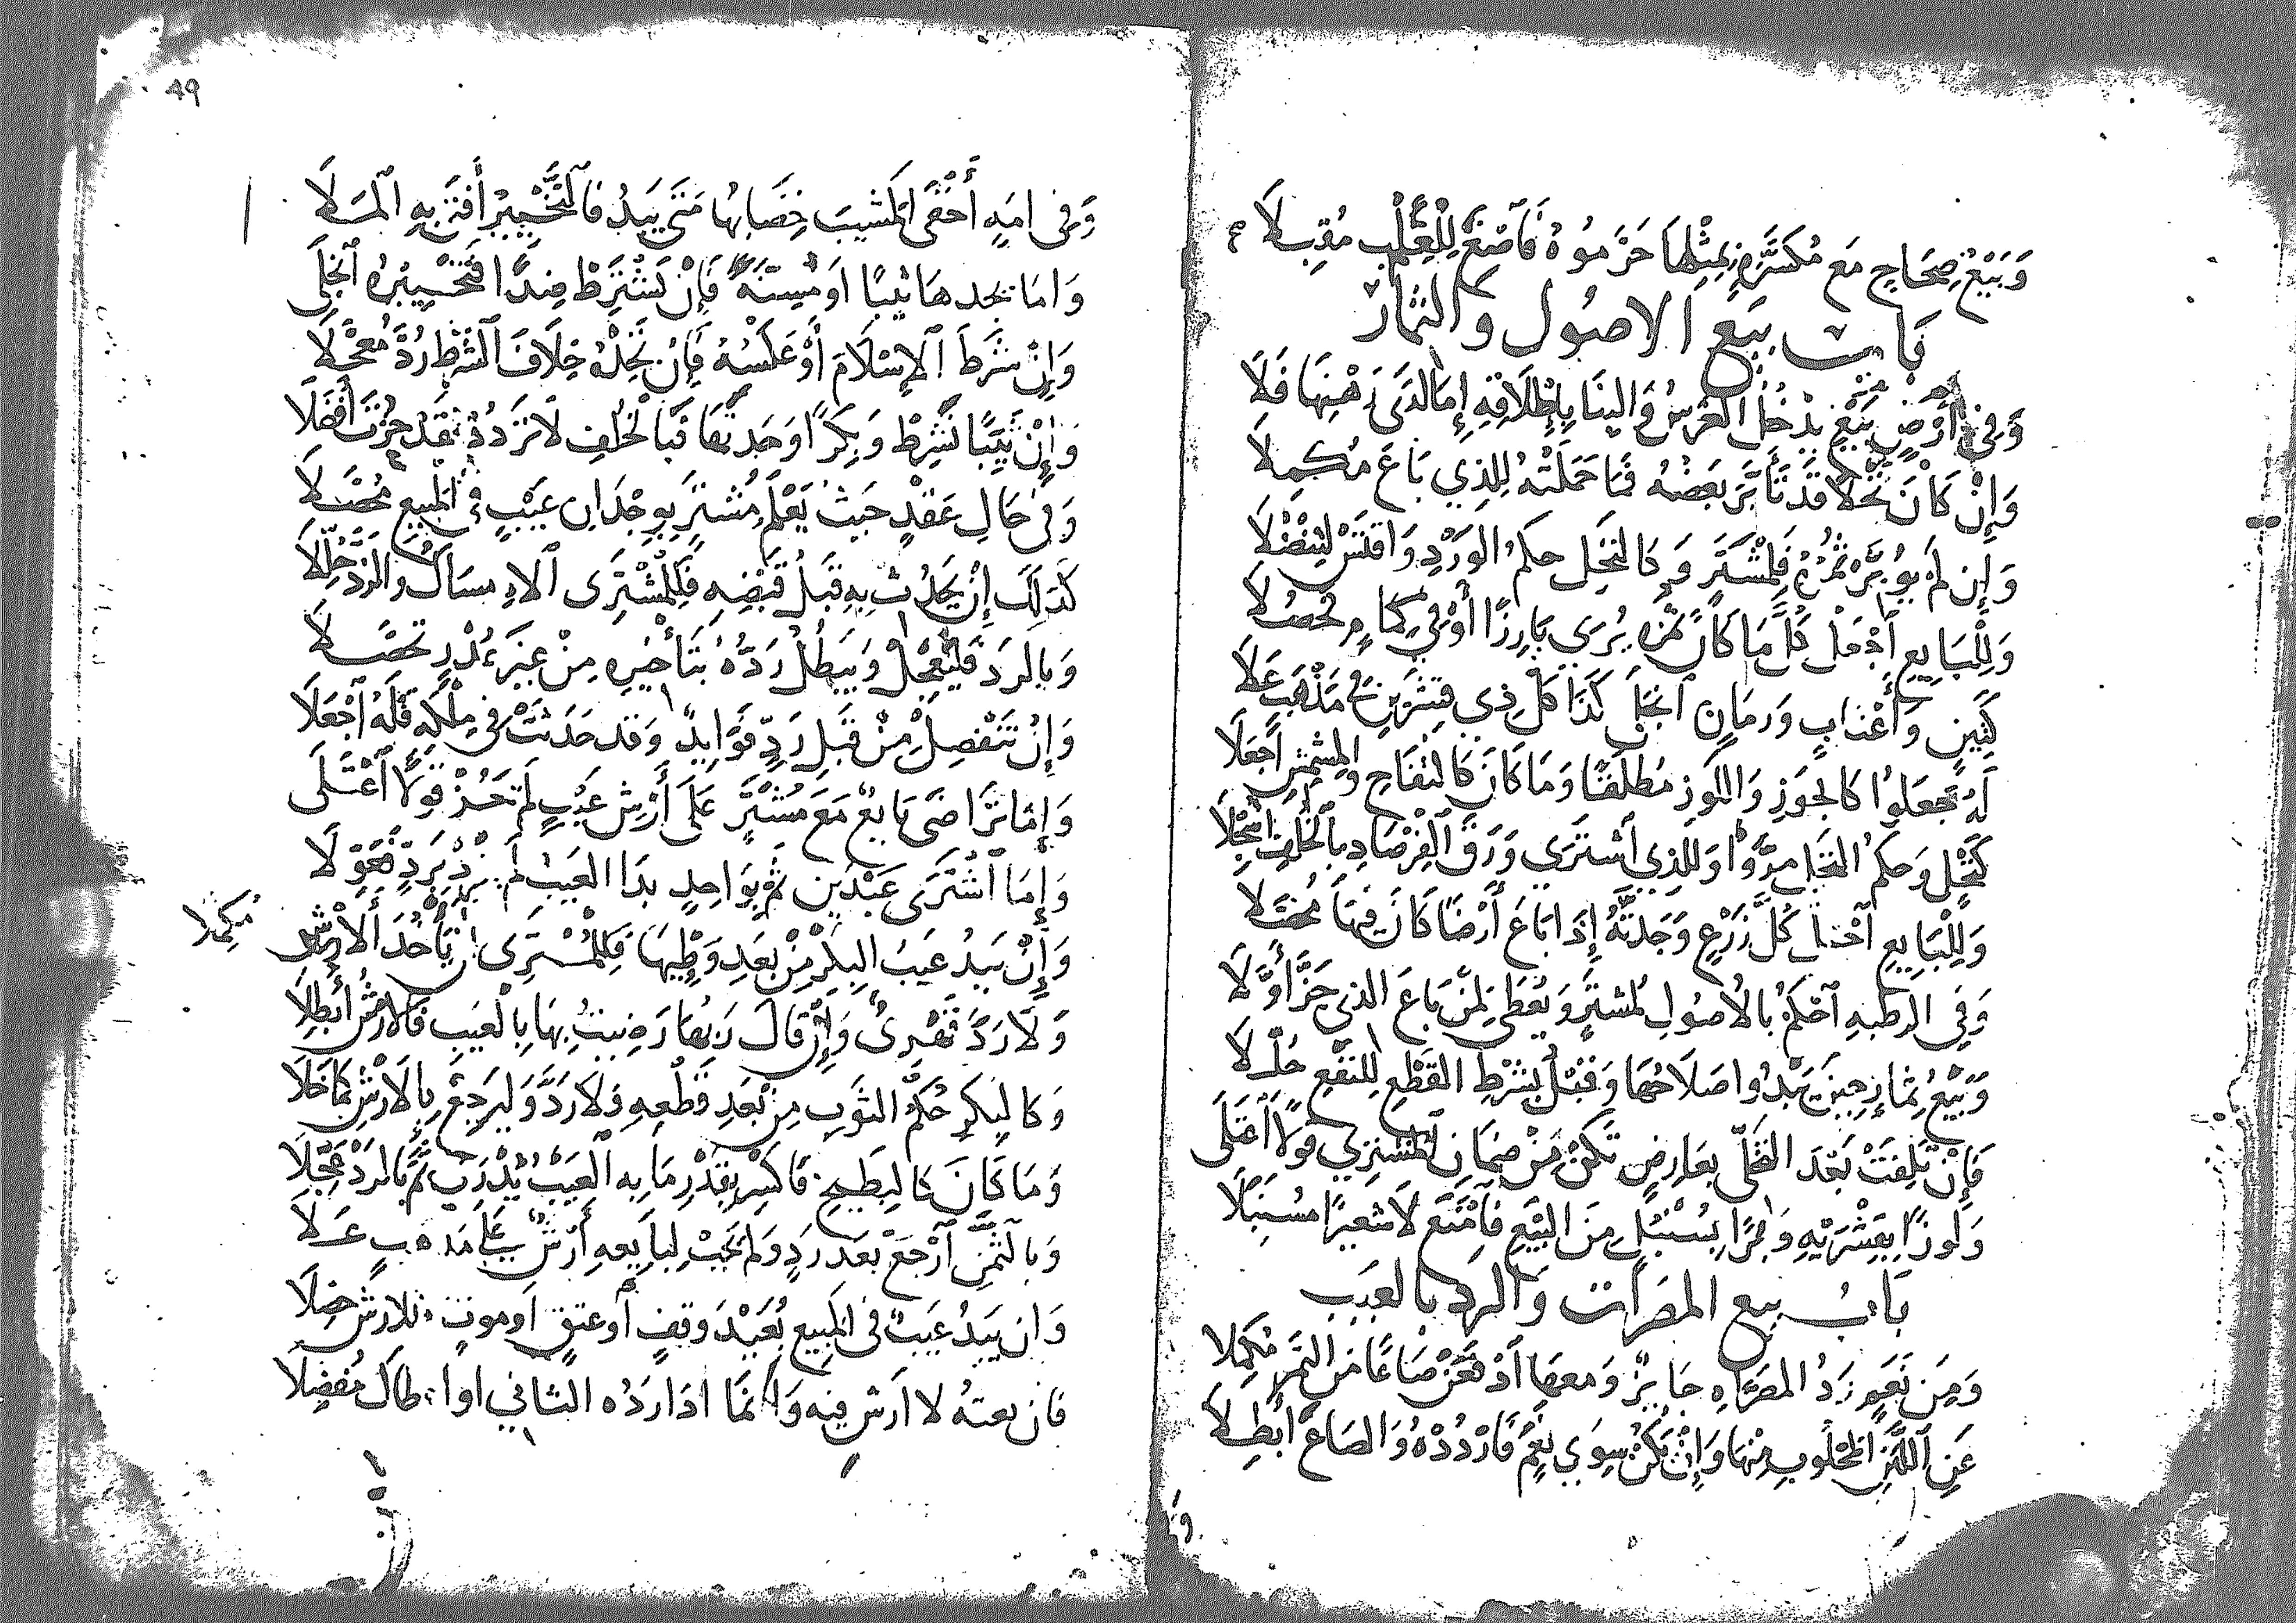 وَبَيْعُ صِحَاحٍ مَع مُكَسَّرَةٍ بِمِثْلِهَا حَرَّموُهُ فَاَصْغَ لِلْعِلْمِ مُقبِلَا
بَابُ بَيَع الاصُول وَالثمَار
وَفِى أَرْضٍ بَيْعٍ يدْخُلُ الغَرْسُ وَالبِنَا بِإِطْلَاقِهِ إِمَا لَدَى رَهْنِهَا فَلَا
وَإِنْ كَانَ نَخْلًا قَدْ تَأَبَّرَ بَعَضُهُ فَمَا حَمَلَتْهُ لِلذِي بَاعَ مُكمِلَا
وَإِن لَمْ يُوُبَّرْ ثمَرُهُ فَلِمُشْتَرٍ وَكَالنَخْلِ حكمُ الوَرْدِ
وَلِلْبَايِعِ اَدْخَل كُلَّ مَا كَانَ ثمَرُه يُرَى بَارِزًا أَوْ فِي كِمَامٍ
كَتِينٍ وَأَعْنَابٍ وَرمَانٍ كَذَا كُل ذِي قِشْرَيْنِ فِي مَذْهَبٍ عَلَا
لَهُ تَجْعَلوُا كَالجَوْزِ وَاللَوْزِ مُطلَقًا وَمَا كَانَ كَالتُفَاحِ وَالمِشْمِشِ اَجْعَلَا
كَنَخْلٍ وَحكمُ النَخْلِ وَلِلذِي اَشْتَرَى وَرَقُ اَلفِرْصَادِ بِاَلخُلْفِ
وَلِلْبَايِعِ كُلَّ زَرْعٍ وَجَدْتَّهُ إِذَا بَاعَ أَرْضًا كَانَ فِيهَا
وَفِي الرطْبَهِ اَحْكُمْ بِالأُصُولِ لِمُشترٍ وَيُعْطَى لِمَنْ بَاعَ الذي جَزَّ أَوَّلَا
وَبَيْعُ ثِمَارٍ حِينَ يَبْدُوا صَلَاحُهَا وَقَبْلُ بِشَرْطِ القَطْعِ لِلنَفْعِ حُلِّلَا
فَإِنْ تَلِفَتْ بَعْدَ التَخَلّى بِعَارِضٍ تَكُنْ مِنْ ضَمَانِ المُشْتَرِي قَوْلًا اَعْتَلَى
وَلَوزًا بِقِشْرَيْهِ وَبُرًّا بِسُنْبُلٍ مِنَ البَيْعِ فَاَمْنَعْ لَا شَعِيرًا مُسَنْبَلَا
بَابُ بيع المصَرَات وَالرد بالعيب
وَمِن نَعَمٍ رَدُ المصَرَّاهِ جَايِزٌ وَمعهَا صَاعًا مِنَ التَمْرِ مُكمِلَا
عَنِ اَللَّبَنِ المَحْلُوبِ مِنْهَا وَإِنْ يَكُنْ سِوَى نَعَمٍ فَارْدُدْهُ وَالصَاعَ أَبْطِلَا
وَ
49
وَفِى امَةٍ أَخْفَى المَشِيبَ خِضَابُهَا مَتَى يَبدُ فَالتَّخْيِيرُ أَفْتَى بِهِ المَلَا
وَامَا تجدهَا ثَيِّبًا اَوْ مُسِنَّةً فَإِنْ تَشْتَرِطْ ضِدًّا فَتَخْيِيرُهُ
وَإِنْ شَرَطَ اَلاِسْلَامَ أَوْ عَكسَهُ فَإِنْ تَجِدْهُ خِلَافَ اَلشَرْطِ رُدَّ مُعَجِّلَا
وَإِنْ ثَيِّبًا تَشْرِطْ وَبِكرًا وَجَدتَهَا فَبَالخُلفِ لَا تَرْدُدْ فَقَدْ حُزْتَ أَفْضَلَا
وَفِى حَالِ عَقْدٍ حَيثُ يَعْلَمُ مُشْتَرٍ بِوِجْدَانِ عَيْبٍ فِي المَبِيعِ مُحَصَّلَا
كَذَلِكَ إِنْ يَحْدُثْ بِهِ قَبْلَ قَبْضِهِ فَلِلمُشْتَرِى اَلاِمسَاكُ وَالرَدُّ حُلِّلَا
وَبالرَد فَليُعَجِّلْ وَيَبطُلُ رَدُّهُ بتَأْخِيرِهِ مِنْ غَيرِ عُذْرٍ تحصَّلَا
وَإِنْ تَنْفَصِلْ مِنْ قَبلِ رَدٍّ فَوَايِدٌ وَقَد حَدَثَتْ فِي مِلْكِهِ فَلَهُ اَجْعَلَا
وَإِمَّا تَرَاضَى بَايعٌ مَعَ مُشْتَرٍ عَلَى أَرْشِ عَيْبٍ لَم تَحُزْ قَوْلًا اَعْتَلَى
وَإِمَا اَشْتَرَى عَبْدَينِ ثُمَّ بِوَاحِدٍ بَدَا العَيبُ لَم
وَإِنْ يَبدُ عَيبُ البِكرِ مِنْ بَعدِ وَطِيهَا فَلِلمُشْتَرِى أَنْ يَأْخُذَ الأَرْشَ مُكمِلا
وَلَا رَدَّ قَهْرِىٌّ وَإِنْ قَالَ رَبُهَا رَضِيتُ بِهَا بِالعَيبِ فَالأَرْشُ أُبْطِلَا
وَكالبِكرِ حُكمُ الثَوبِ مِنْ بَعدِ قَطْعِهِ فَلَا رَدَّ وَليَرجِعْ بِالأَرْشِ كَمَا خَلَا
وَمَا كَانَ كَالبِطِّيخِ فَاكسِر بِقَدْرِ مَا بِهِ اَلعَيْبُ يُدْرَى ثُمَّ بَالرَدِّ عَجِّلَا
وَبالثَّمَنِ اَرْجِعْ بَعدَ رَدٍ وَلَم يَجِبْ لِبَايِعِهِ أَرْشٌ عَلَى مَذهبٍ عَلَا
وَان يَبدُ عَيبٌ فى المَبِيعِ بُعَيْدَ وَقفٍ اَو عتقٍ اَو موتٍ فللارشِ حَصِّلَا
فَان بعتهُ لا ارَشَ فِيهِ وَانمَا اذَا رَدهُ الثانى